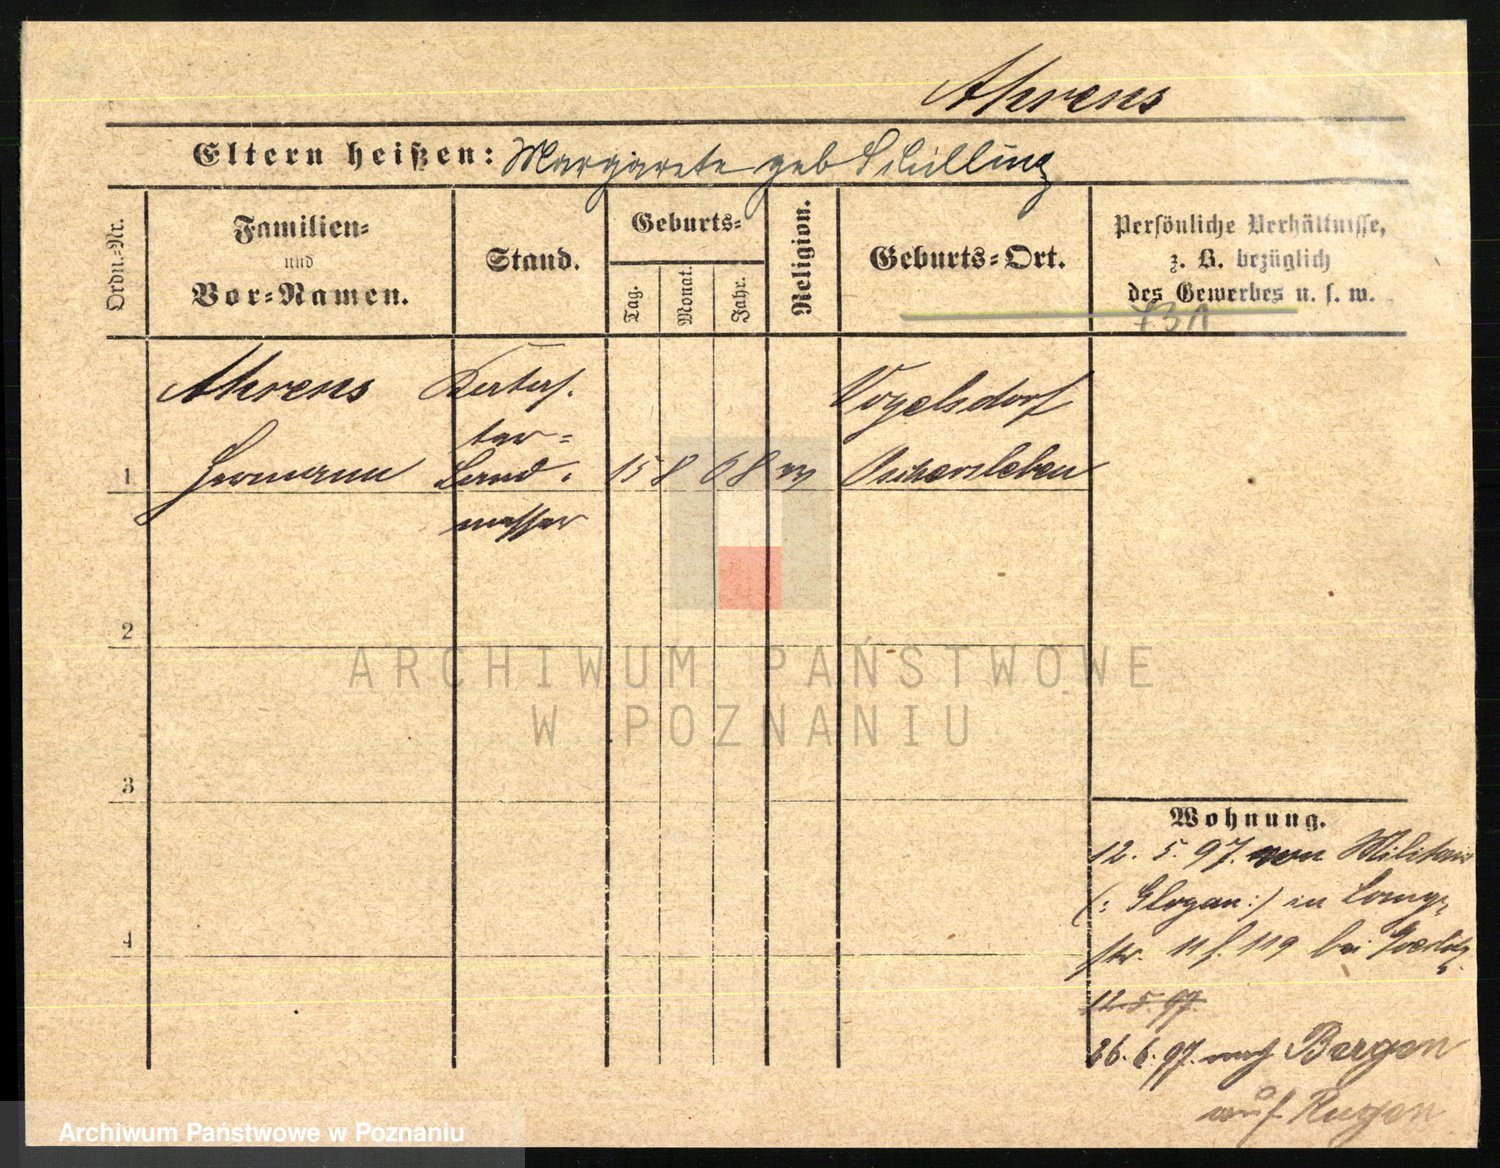 Ahrens
Eltern heißen: Margarete geb Schilling
Ordn.-Nr.
Familien-
und
Vor-Namen.
Stand.
Geburts-
Tag.
Monat.
Jahr.
Religion.
Geburts-Ort.
Persönliche Verhältnisse,
z. B. bezüglich
des Gewerbes u. s. w.
731
Ahrens
Hermann
Kataf.
ter-
Land-
messer
1
15 8 68
Vogelsdorf
Oschersleben
2
3
4
Wohnung.
12. 5. 97. von Militair
(: Glogau :) in Lang-
str. 11 f. 119 bei
12. 5. 97.
26. 6. 97. nach Bergen
auf Rügen
ARCHIWUM PAŃSTWOWE
W POZNANIU
Archiwum Państwowe w Poznaniu